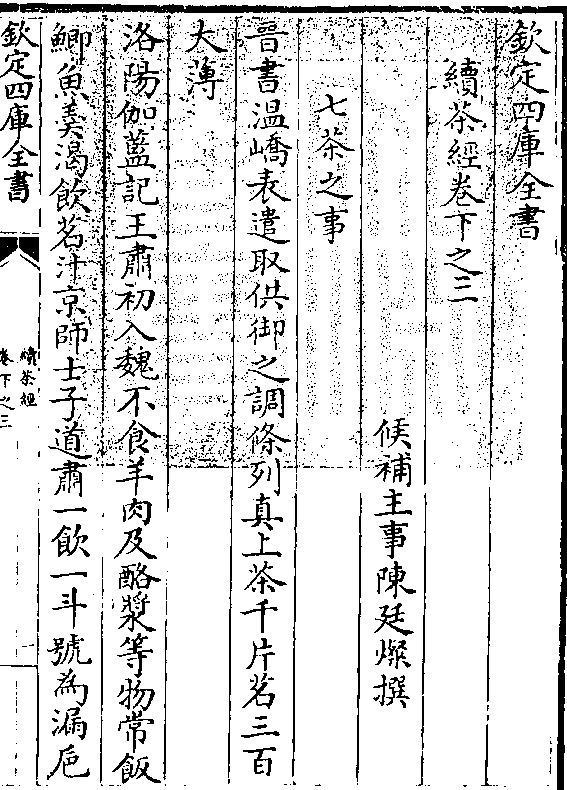 欽定四庫全書
續茶經卷下之三
候補主事陳廷燦撰
七茶之事
晉書溫嶠表遣取供御之調條列真上茶千片茗三百
大薄
洛陽伽藍記王肅初入魏不食羊肉及酪漿等物常飯
鯽魚羹渴飲茗汁京師士子道肅一飲一斗號為漏巵
欽定四庫全書
續茶經
卷下之三